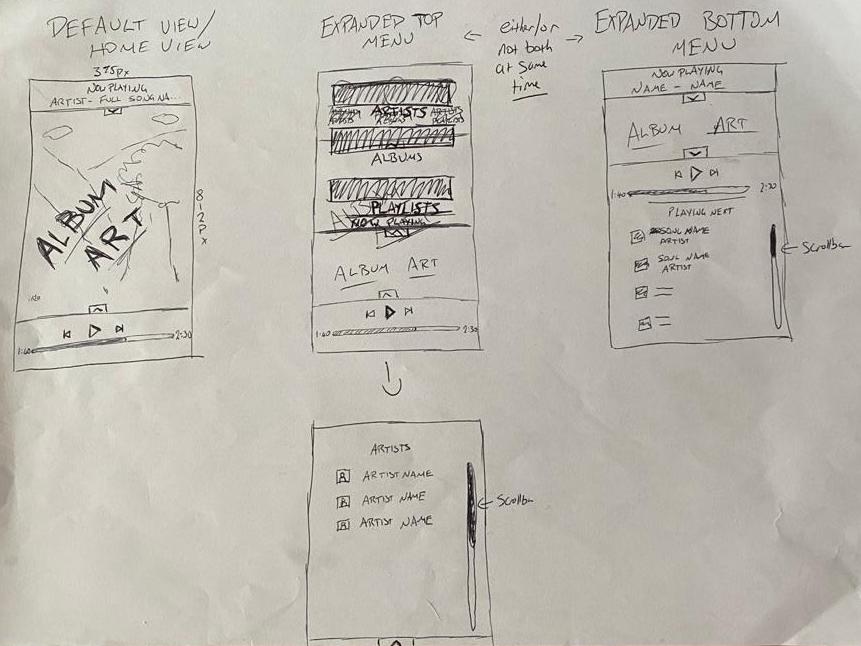 DEFAULT VIEW/
HOME VIEW
375px
NOW PLAYING
ARTIST - FULL SONG NA...
ALBUM
ART
812px
1:40
2:30
EXPANDED TOP
MENU
either/or
not both
at same
time
ARTISTS
ALBUMS
PLAYLISTS
NOW PLAYING
ALBUM ART
1:40
2:30
EXPANDED BOTTOM
MENU
NOW PLAYING
NAME - NAME
ALBUM ART
1:40
2:30
PLAYING NEXT
SONG NAME
ARTIST
SONG NAME
ARTIST
Scrollbar
ARTISTS
ARTIST NAME
ARTIST NAME
ARTIST NAME
Scrollbar